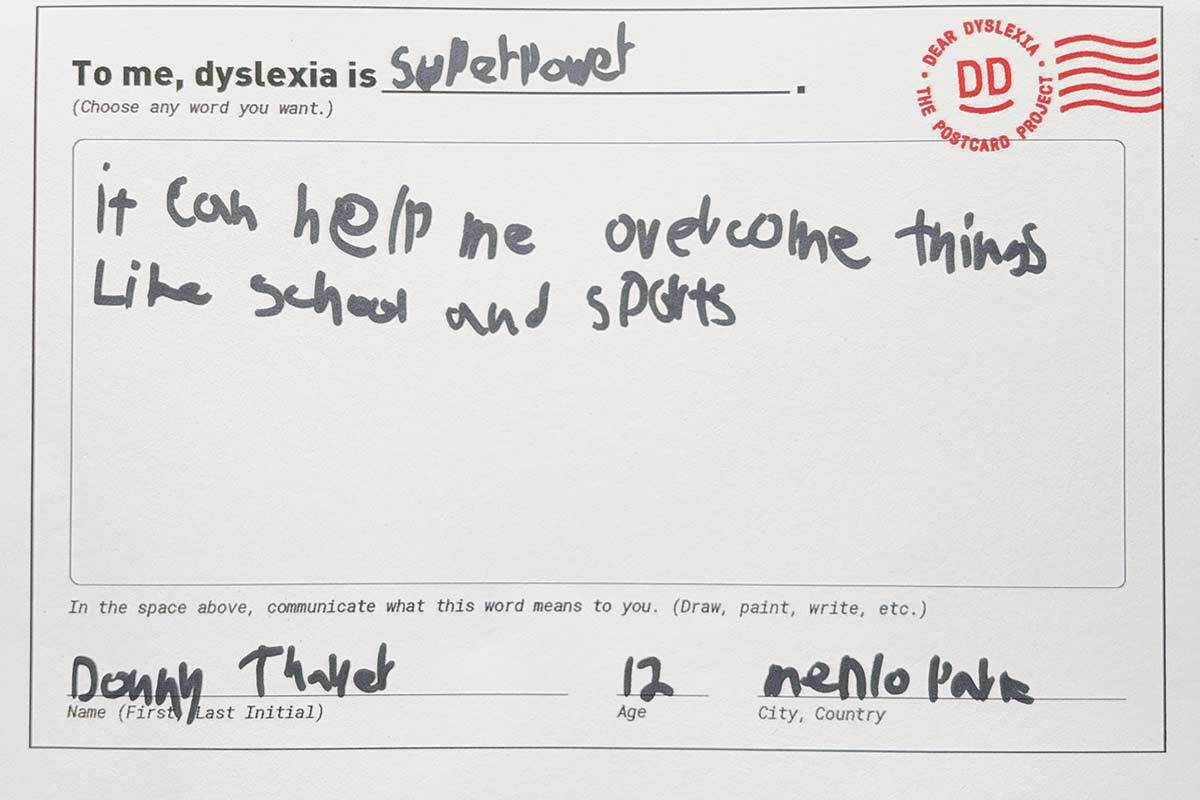 To me, dyslexia is superpower.
(Choose any word you want.)
DEAR DYSLEXIA
DD
THE POSTCARD PROJECT
it can help me overcome things
Like school and sports
In the space above, communicate what this word means to you. (Draw, paint, write, etc.)
Donny Thayer 12 menlo Park
Name (First, Last Initial) Age City, Country